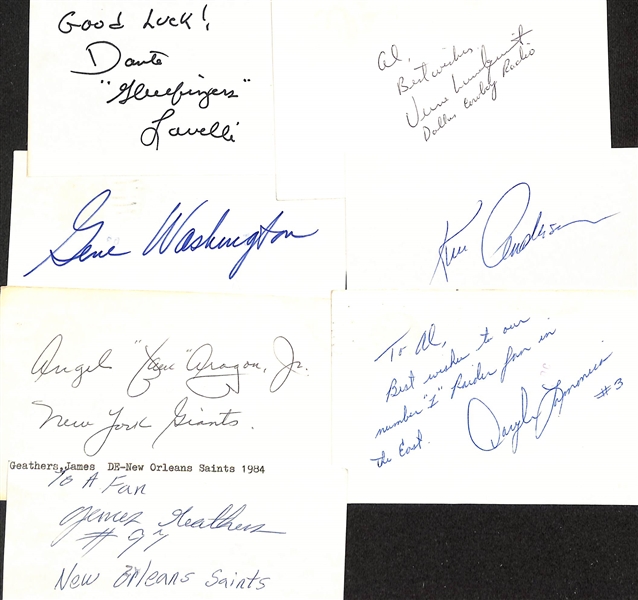 Good Luck!
Dante
"Gluefingers"
Lavelli
Al,
Best wishes
Verne Lundquist
Dallas Cowboy Radio
Gene Washington
Ken Anderson
Angel "Jan" Aragon, Jr.
New York Giants.
To Al,
Best wishes to our
number "1" Raider fan in
the East.
Daryle Lamonica
#3
Geathers,James DE-New Orleans Saints 1984
To A Fan
James Geathers
#97
New Orleans Saints